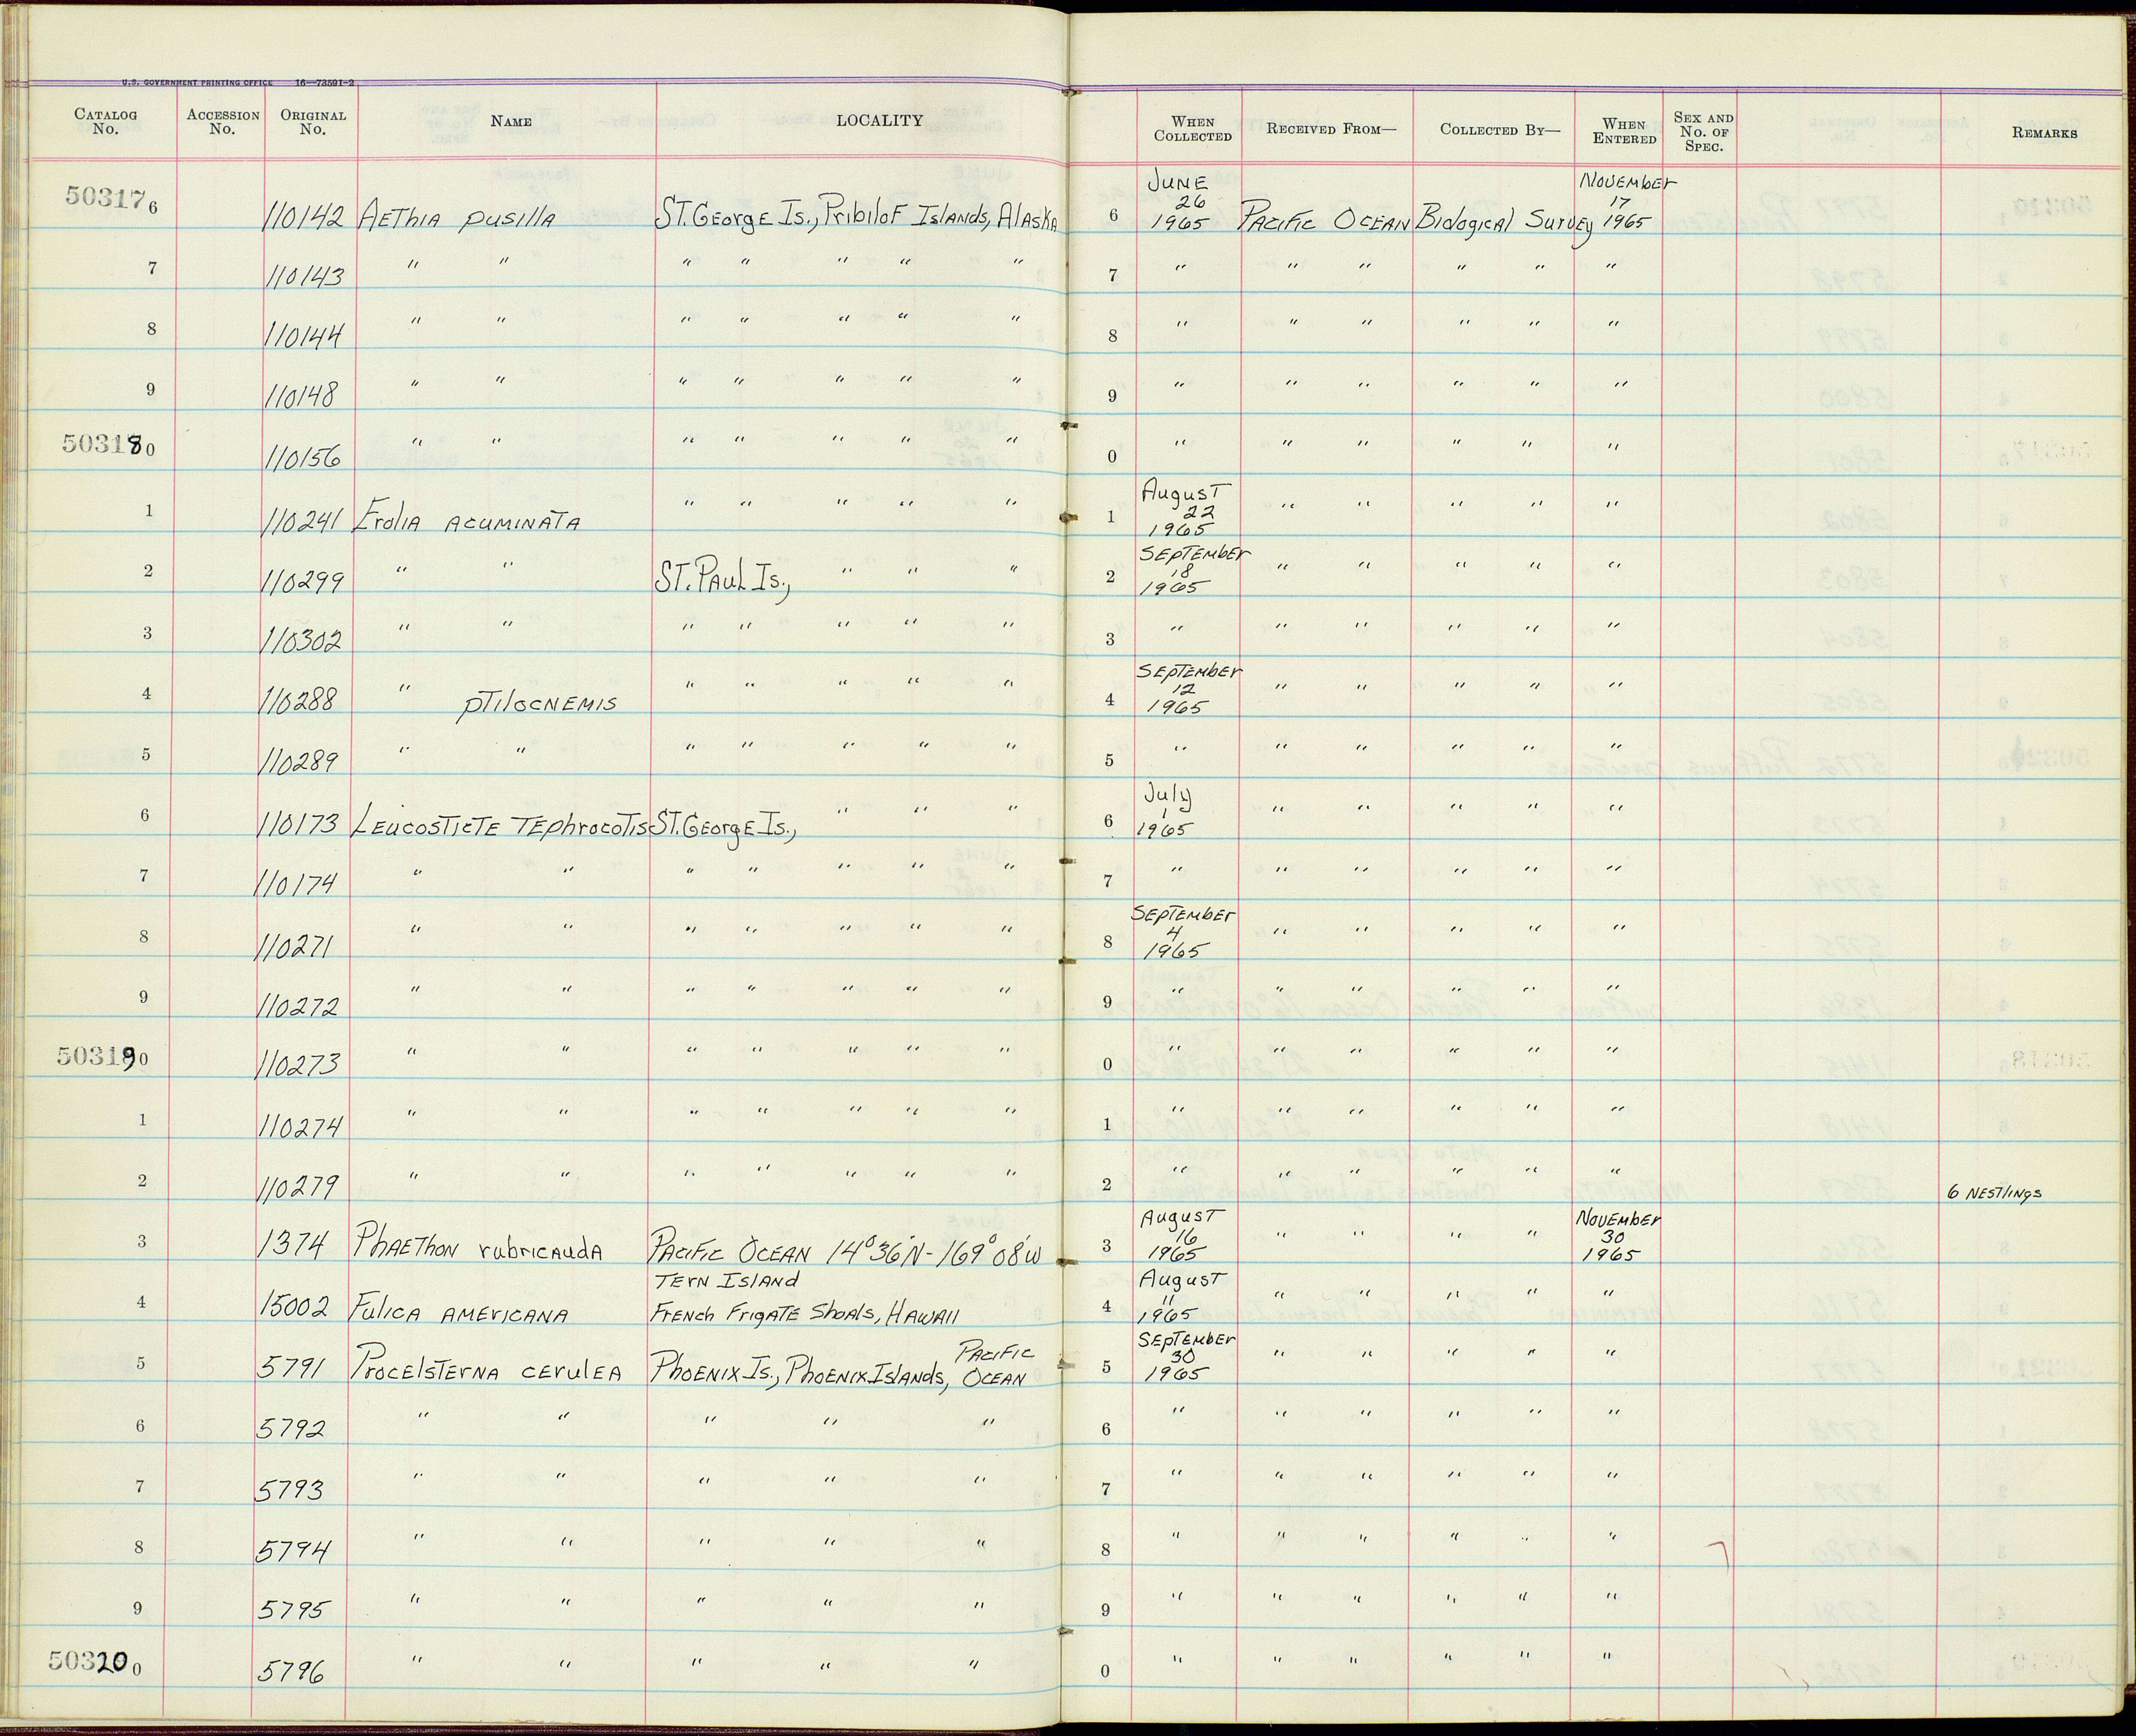 U.S. GOVERNMENT PRINTING OFFICE 16—73591-2
CATALOG No. ACCESSION No. ORIGINAL No. NAME LOCALITY WHEN COLLECTED RECEIVED FROM— COLLECTED BY— WHEN ENTERED SEX AND No. OF SPEC. REMARKS
503176 110142 Aethia pusilla St. George Is., Pribilof Islands, Alaska 6 June 26 1965 Pacific Ocean Biological Survey November 17 1965
7 110143 " " " " " " " 7 " " " " " "
8 110144 " " " " " " " 8 " " " " " "
9 110148 " " " " " " " 9 " " " " " "
503180 110156 " " " " " " " 0 " " " " " "
1 110241 Erolia acuminata " " " " " 1 August 22 1965 " " " " "
2 110299 " " St. Paul Is., " " " 2 September 18 1965 " " " " "
3 110302 " " " " " " " 3 " " " " " "
4 110288 " ptilocnemis " " " " " 4 September 12 1965 " " " " "
5 110289 " " " " " " " 5 " " " " " "
6 110173 Leucosticte tephrocotis St. George Is., " " " 6 July 1 1965 " " " " "
7 110174 " " " " " " " 7 " " " " " "
8 110271 " " " " " " " 8 September 4 1965 " " " " "
9 110272 " " " " " " " 9 " " " " " "
503190 110273 " " " " " " " 0 " " " " " "
1 110274 " " " " " " " 1 " " " " " "
2 110279 " " " " " " " 2 " " " " " " 6 nestlings
3 1374 Phaethon rubricauda Pacific Ocean 14°36'N-169°08'W 3 August 16 1965 " " " " November 30 1965
4 15002 Fulica americana Tern Island French Frigate Shoals, Hawaii 4 August 11 1965 " " " " "
5 5791 Procelsterna cerulea Phoenix Is., Phoenix Islands, Pacific Ocean 5 September 30 1965 " " " " "
6 5792 " " " " " 6 " " " " " "
7 5793 " " " " " 7 " " " " " "
8 5794 " " " " " 8 " " " " " "
9 5795 " " " " " 9 " " " " " "
503200 5796 " " " " " 0 " " " " " "